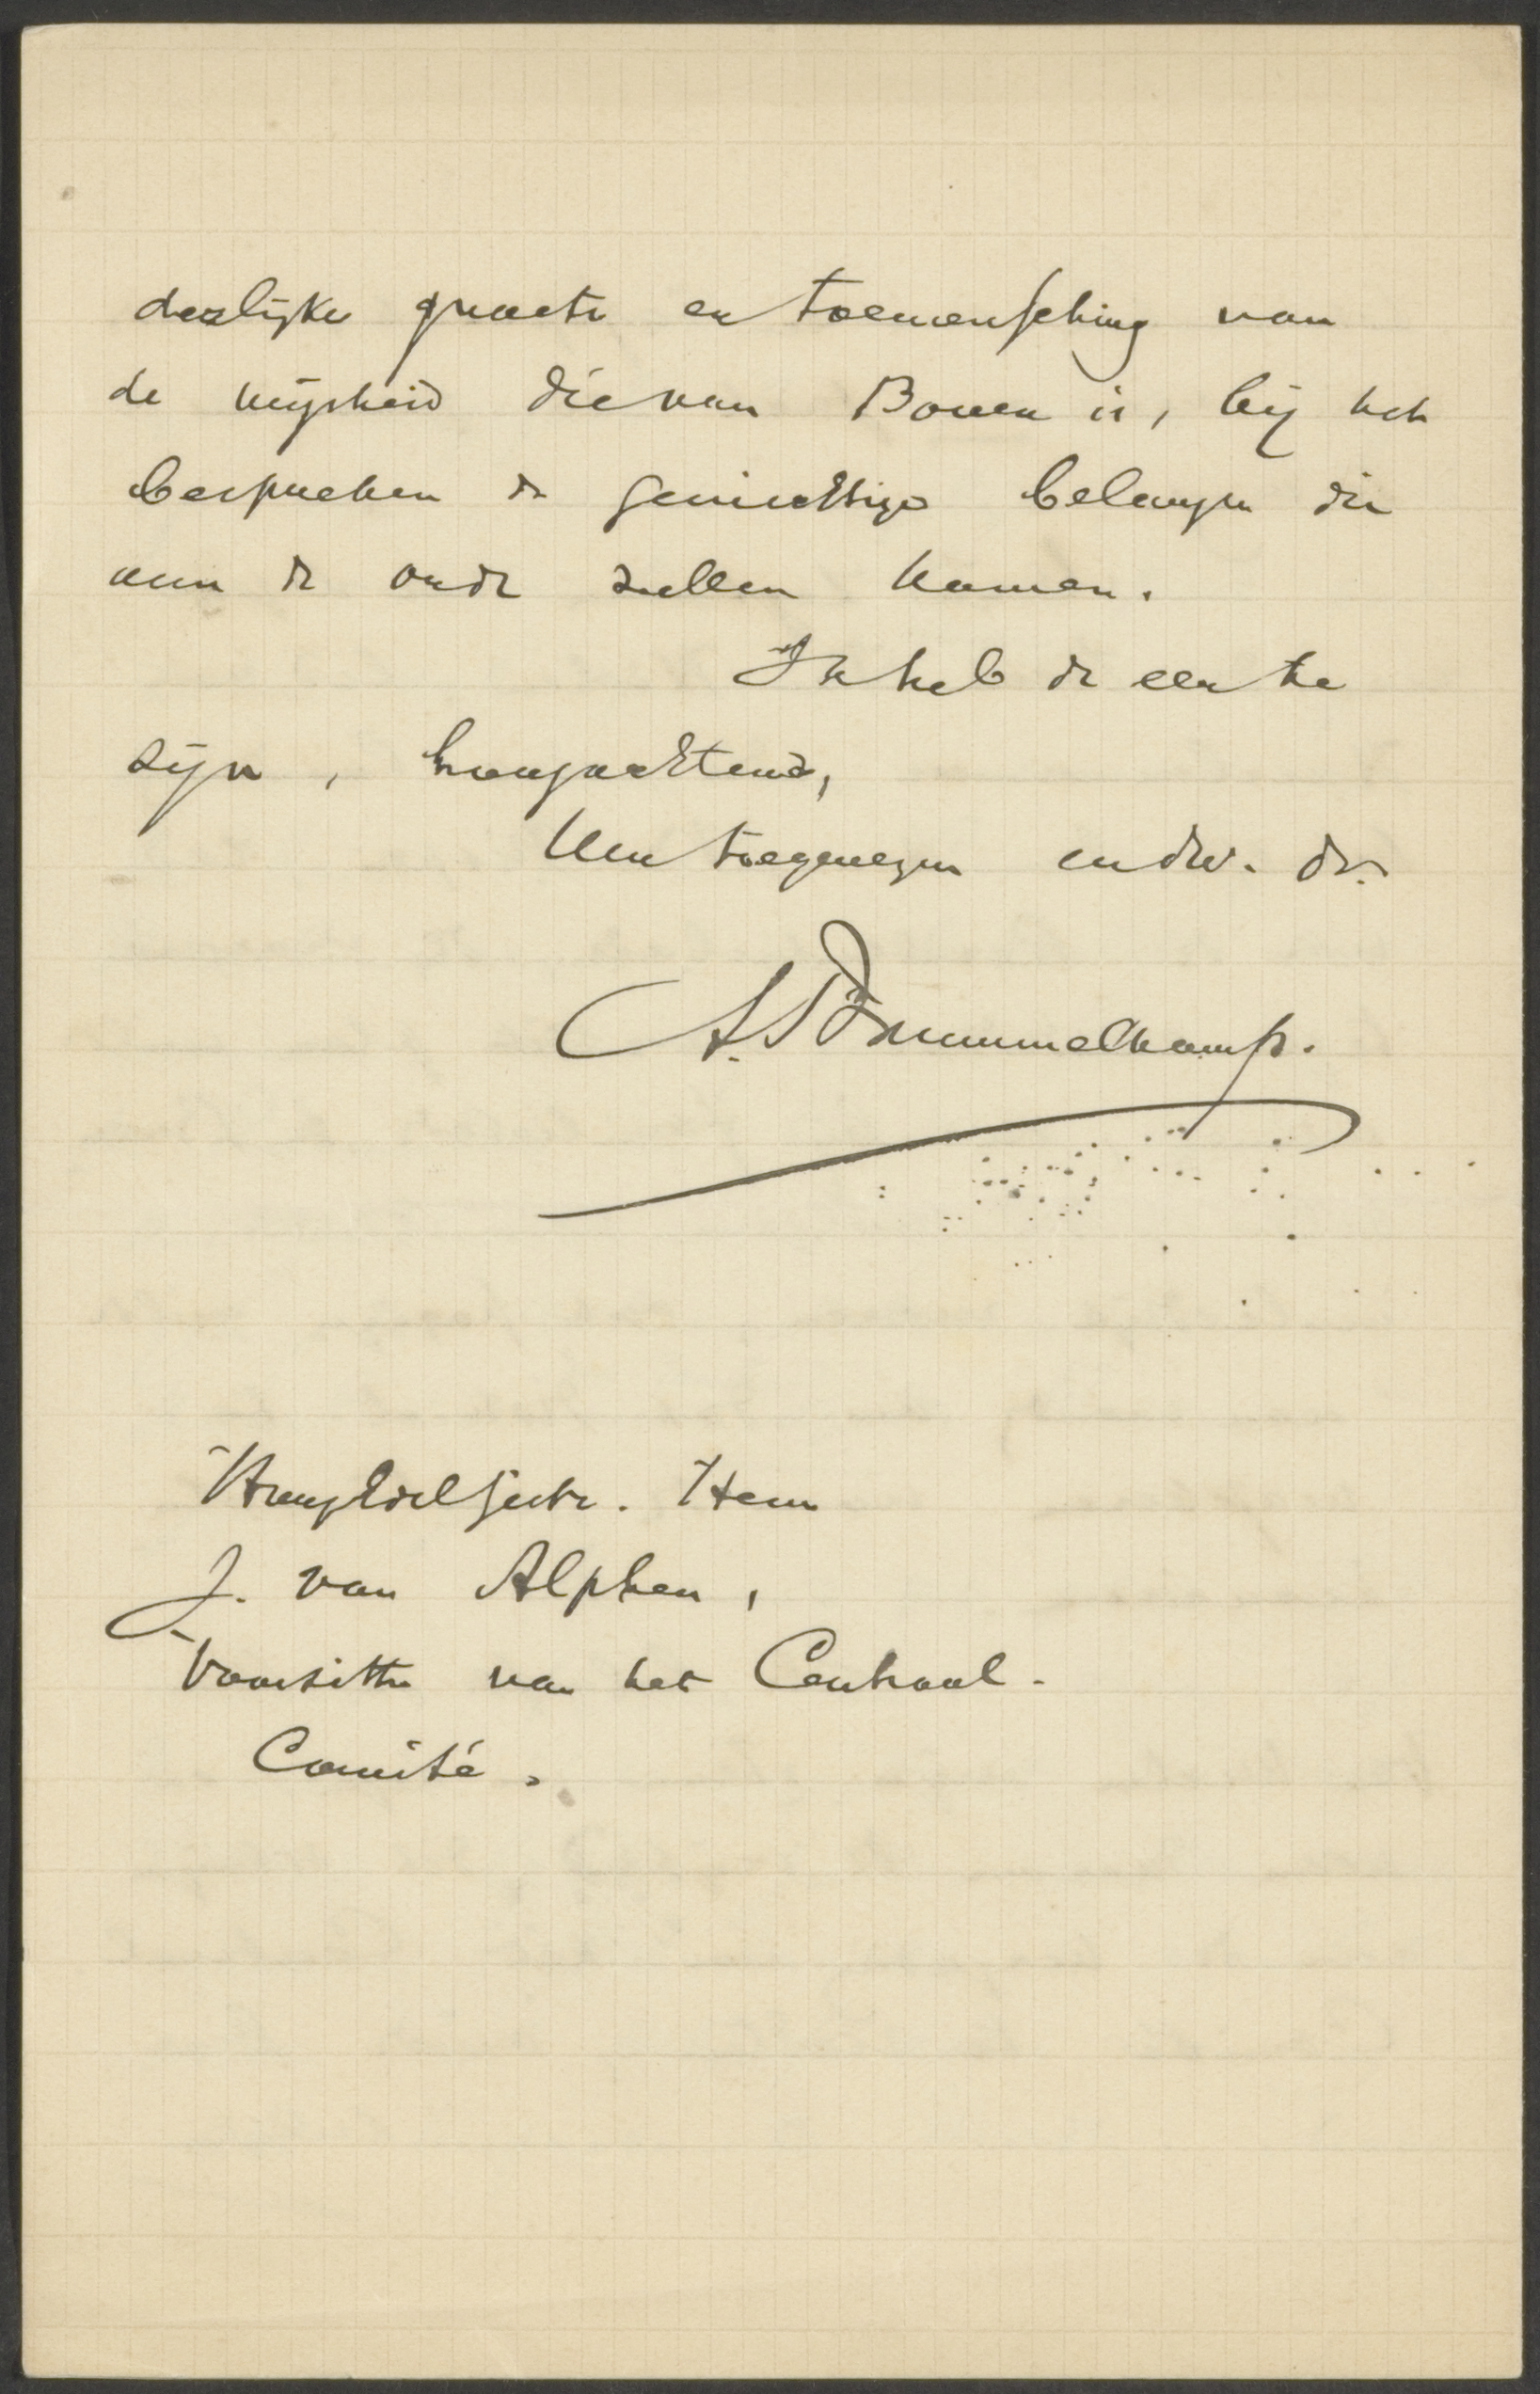 derlijke groete en toewensching van
de wijsheid die van Boven is, bij het
bespreken der gewichtige belangen die
aan de orde zullen komen.
Ik heb de eer te
zijn, hoogachtend,
Uw toegenegen en dw. dr.
A. Brummelkamp.
HoogEdelGestr. Heer
J. van Alphen,
Voorzitter van het Centraal-
Comité.